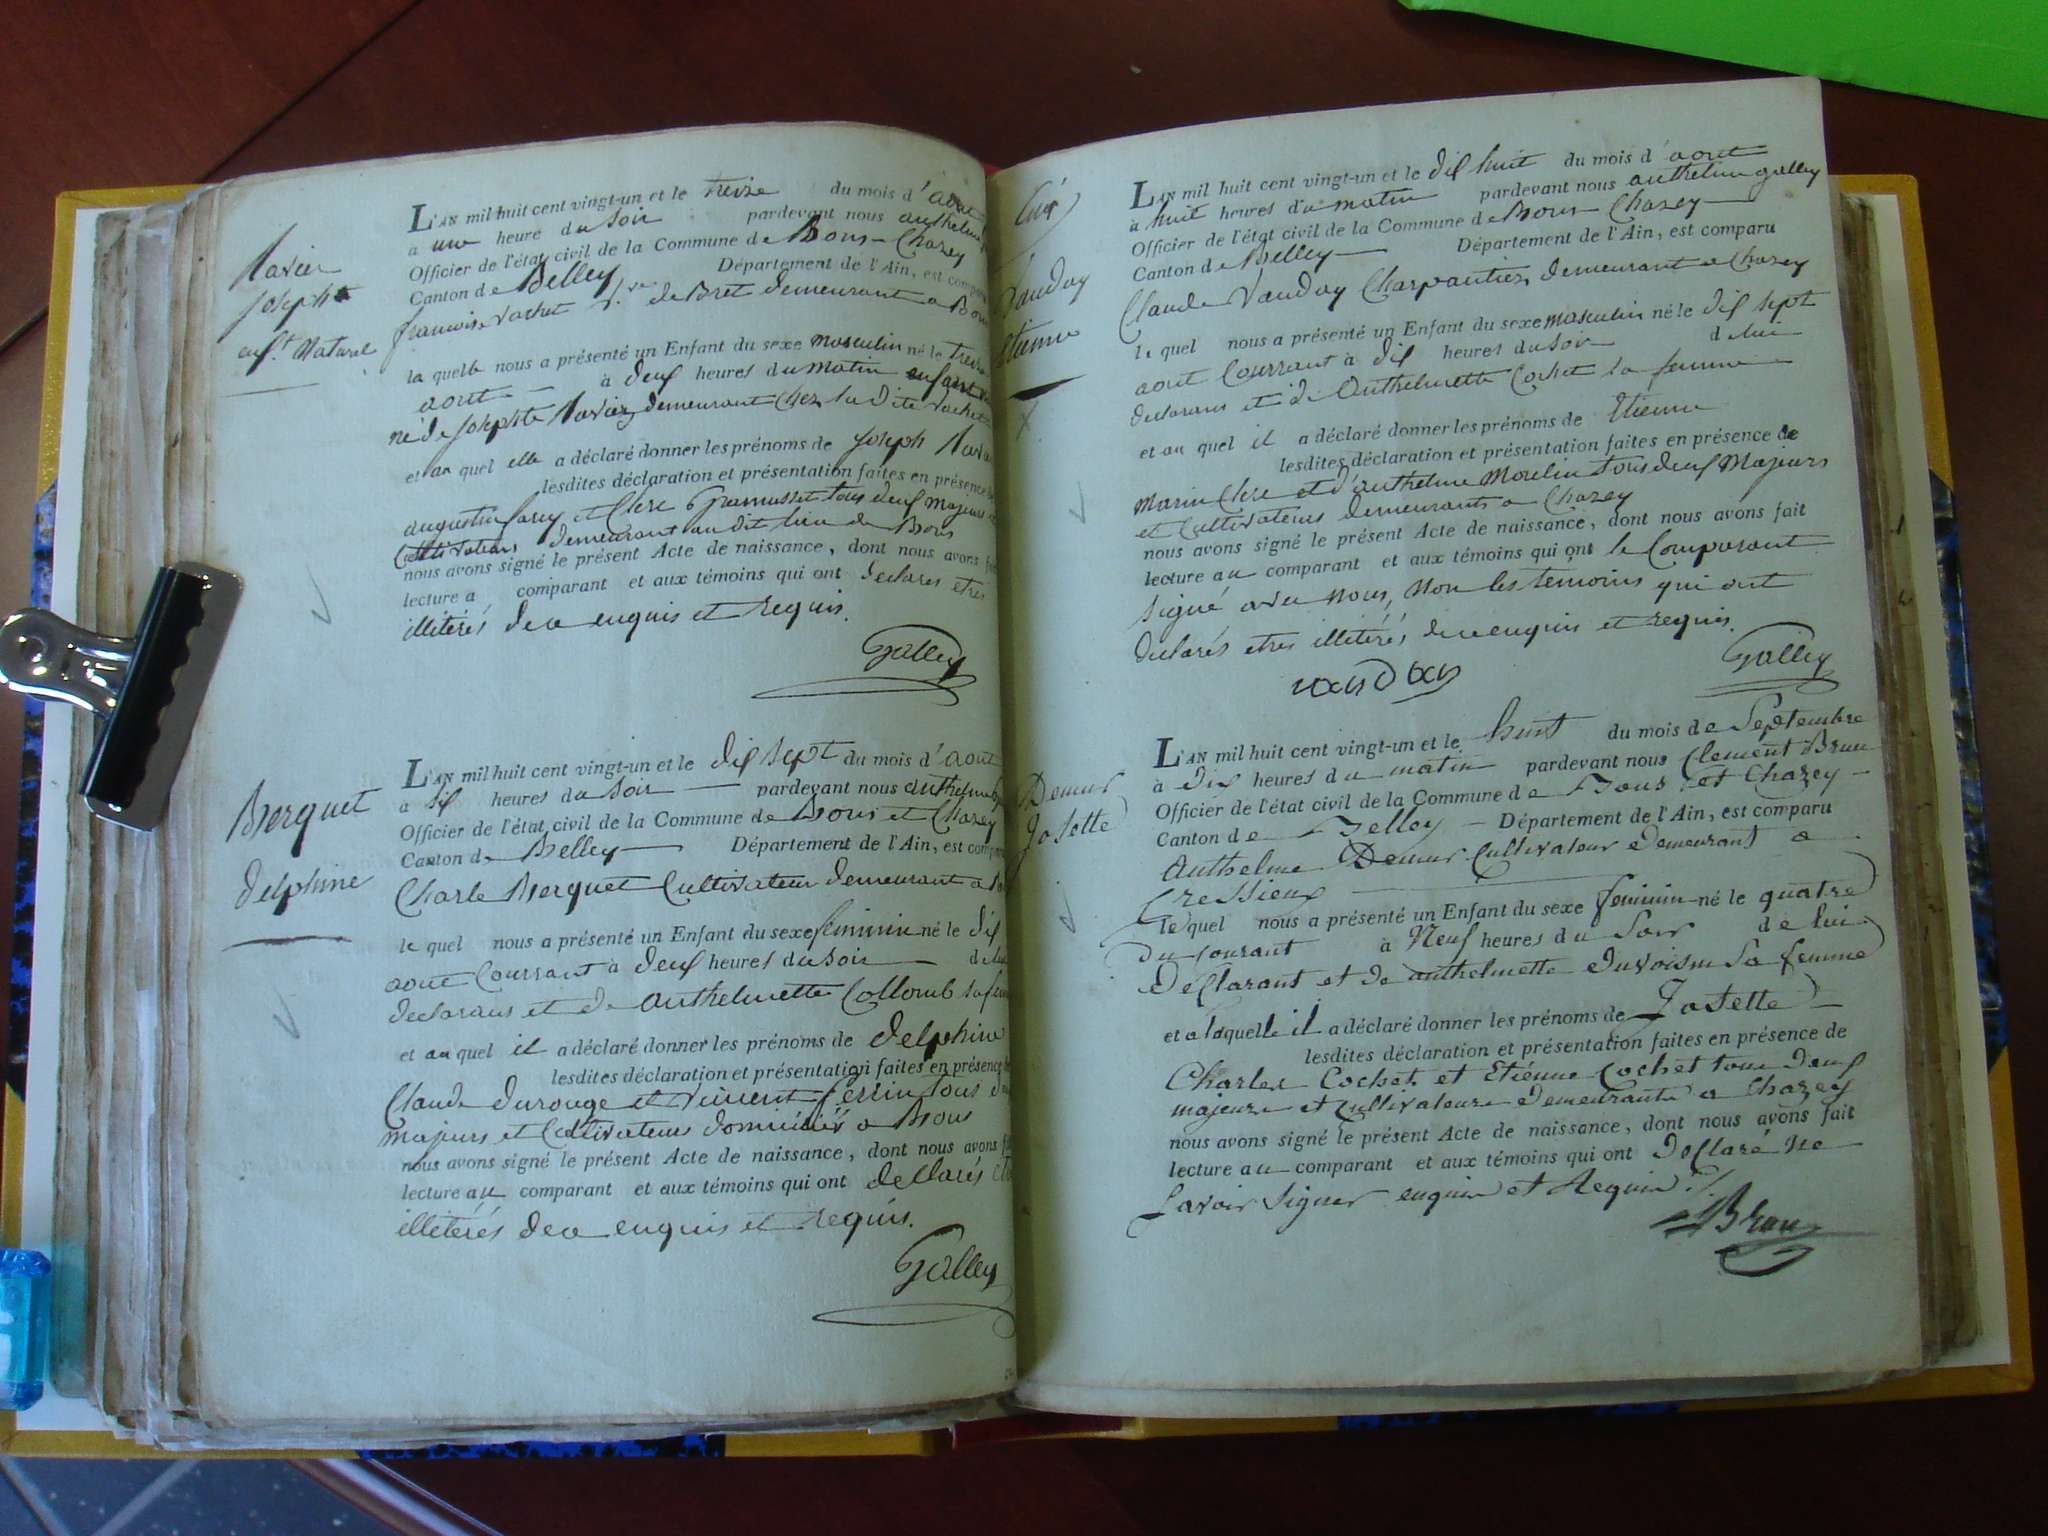 Joseph
enft. Natural
L'AN mil huit cent vingt-un et le treize du mois d'aout
a une heure du soir pardevant nous anthelme
Officier de l'état civil de la Commune de Bons-Chazey
Canton de Belley Département de l'Ain, est comparu
francoise vachet de Bret demeurant a Bons
la quelle nous a présenté un Enfant du sexe masculin né le treize
aout à deux heures du matin enfant
né de Josephte demeurant chez la dite vachet
et au quel elle a déclaré donner les prénoms de joseph
lesdites déclaration et présentation faites en présence
augustin et Clere Gramusset tous deux majeurs
Cultivateurs demeurant au dit lieu de Bons
nous avons signé le présent Acte de naissance, dont nous avons fait
lecture a comparant et aux témoins qui ont declares etres
illiterés de ce enquis et requis.
Galley
Berquet
delphine
L'AN mil huit cent vingt-un et le dix sept du mois d'aout
a six heures du soir pardevant nous anthelme
Officier de l'état civil de la Commune de Bons et Chazey
Canton de Belley Département de l'Ain, est comparu
Charle Berquet Cultivateur demeurant a
le quel nous a présenté un Enfant du sexe feminin né le dix
aout Courrant à deux heures du soir de lui
declarans et de anthelmette Collomb sa femme
et au quel il a déclaré donner les prénoms de delphine
lesdites déclaration et présentation faites en présence
Claude durouge et vincent ferrin tous
majurs et Cultivateurs a Bons
nous avons signé le présent Acte de naissance, dont nous avons
lecture au comparant et aux témoins qui ont dellarés
illiterés de ce enquis et requis.
Galley
Vauday
etienne
L'AN mil huit cent vingt-un et le dix huit du mois d'aout
à huit heures du matin pardevant nous anthelme galley
Officier de l'état civil de la Commune de Bons-Chazey
Canton de Belley Département de l'Ain, est comparu
Claude Vauday Charpantier demeurant a Chazey
le quel nous a présenté un Enfant du sexe masculin né le dix sept
aout Courrant à dix heures du soir de lui
declarans et de Anthelmette Cochet sa femme
et au quel il a déclaré donner les prénoms de Etienne
lesdites déclaration et présentation faites en présence de
Marin Clere et d'anthelme Moulin tous deux Majeurs
et Cultivateurs demeurants a Chazey
nous avons signé le présent Acte de naissance, dont nous avons fait
lecture au comparant et aux témoins qui ont le Comparant
signé avec nous, Non les temoins qui ont
declarés etres illiterés, de ce enquis et requis.
Galley
Demur
Josette
L'AN mil huit cent vingt-un et le huit du mois de Septembre
à dix heures du matin pardevant nous Clement Brun
Officier de l'état civil de la Commune de Bons et Chazey
Canton de Belley Département de l'Ain, est comparu
Anthelme Demur Cultivateur Demeurant a
Cressieux
le quel nous a présenté un Enfant du sexe feminin né le quatre
Du courant à Neuf heures du Soir de lui
Déclarant et de anthelmette duvoisin Sa femme
et a laquelle il a déclaré donner les prénoms de Josette
lesdites déclaration et présentation faites en présence de
Charles Cochet et Etiénne Cochet tous deux
majeurs et Cultivateurs demeurants a Chazey
nous avons signé le présent Acte de naissance, dont nous avons fait
lecture au comparant et aux témoins qui ont Déclaré ne
Savoir Signer enquis et Requis
Brun